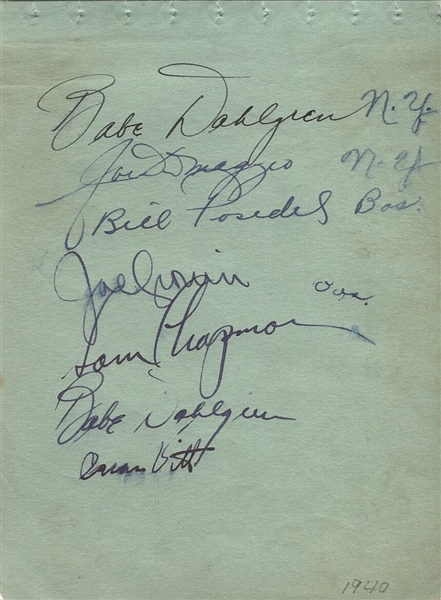 Babe Dahlgren N.Y.
Joe DiMaggio N.Y.
Bill Posedel Bos.
Joe Cronin Bos.
Sam Chapman
Babe Dahlgren
Oscar Vitt
1940